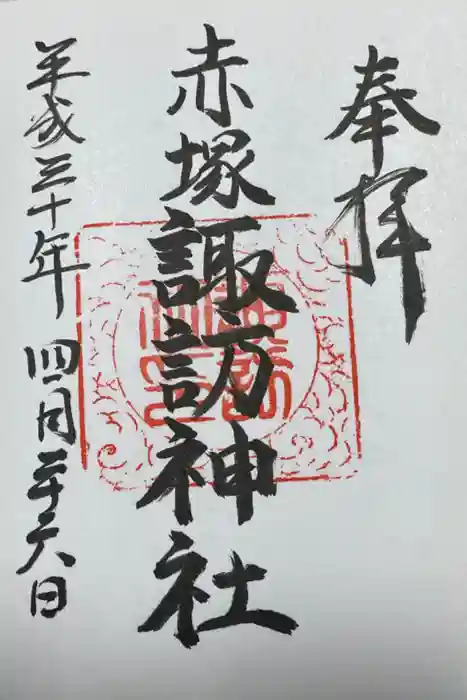 奉拝
赤塚諏訪神社
平成三十年 四月二十六日